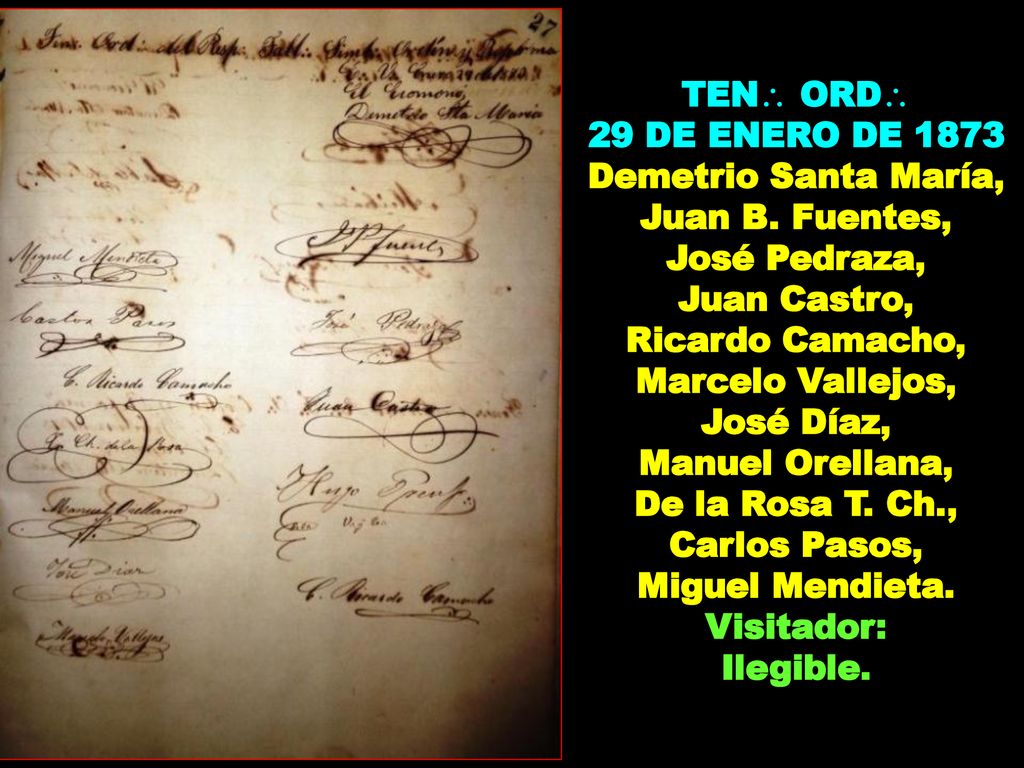 27
Ten∴ Ord∴ del Resp∴ Tall∴ Simb∴ Orden y Reforma
El Ecónomo,
Demetrio Sta María
J B Fuentes
Miguel Mendieta
Carlos Pasos
José Pedraza
C. Ricardo Camacho
Juan Castro
T. Ch. de la Rosa
Hugo
Manuel Orellana
José Diaz
C. Ricardo Camacho
Marcelo Vallejos
TEN∴ ORD∴
29 DE ENERO DE 1873
Demetrio Santa María,
Juan B. Fuentes,
José Pedraza,
Juan Castro,
Ricardo Camacho,
Marcelo Vallejos,
José Díaz,
Manuel Orellana,
De la Rosa T. Ch.,
Carlos Pasos,
Miguel Mendieta.
Visitador:
Ilegible.